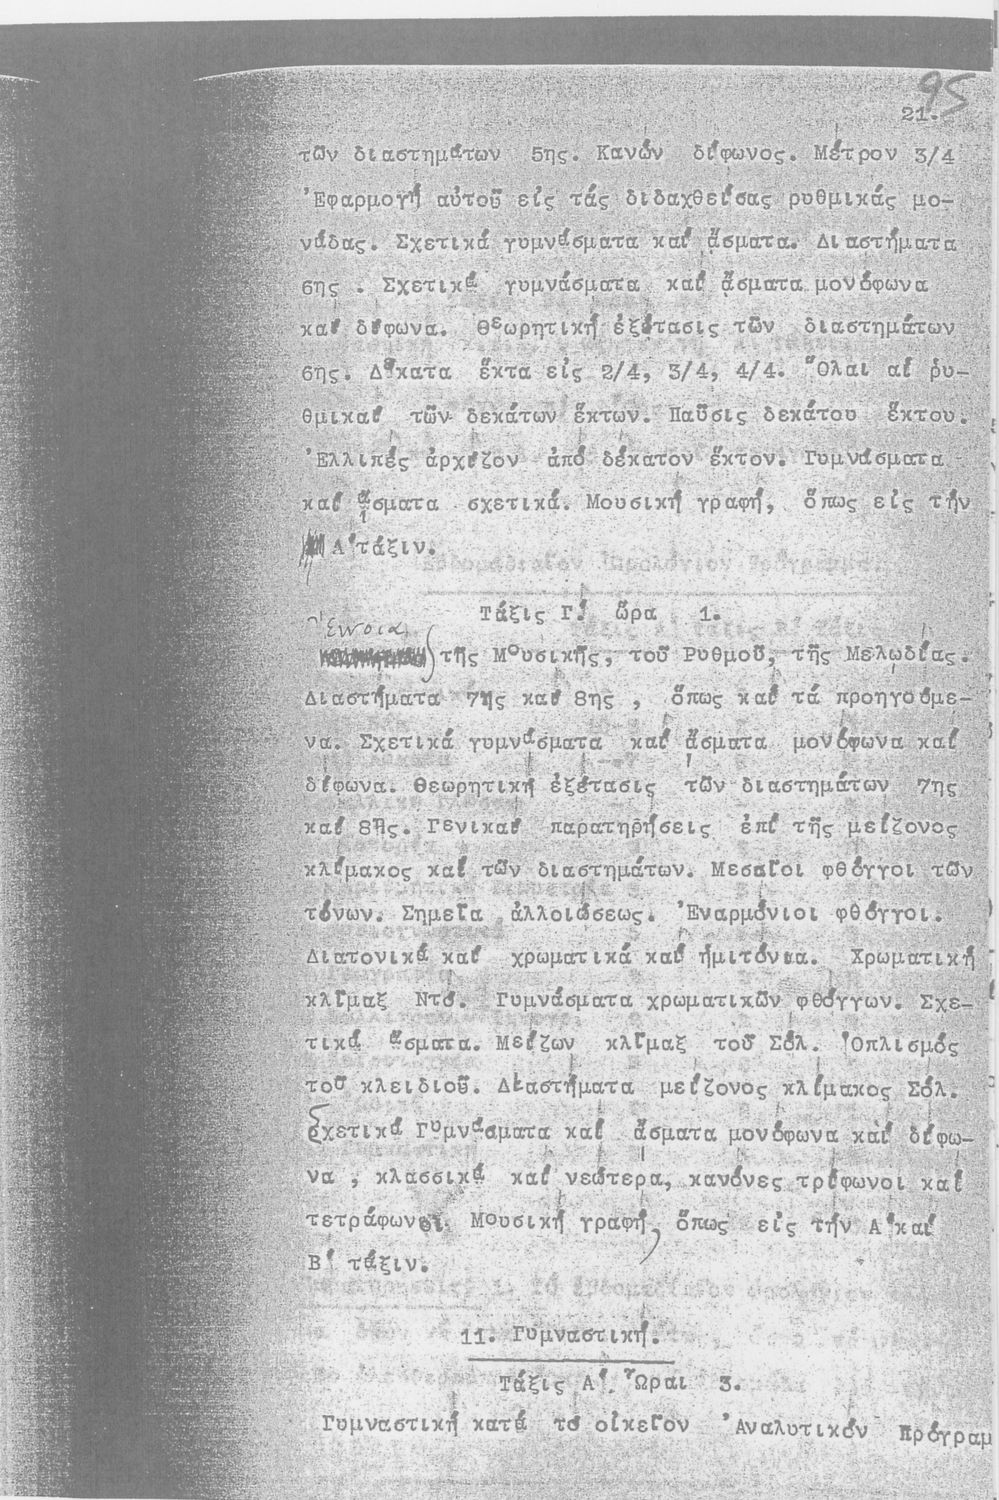 95
21.
τῶν διαστημάτων 5ης. Κανών δίφωνος. Μέτρον 3/4
Ἐφαρμογή αὐτοῦ εἰς τάς διδαχθείσας ρυθμικάς μο-
νάδας. Σχετικά γυμνάσματα καί ᾄσματα. Διαστήματα
6ης . Σχετικά γυμνάσματα καί ᾄσματα μονόφωνα
καί δίφωνα. Θεωρητική ἐξέτασις τῶν διαστημάτων
6ης. Δέκατα ἕκτα εἰς 2/4, 3/4, 4/4. Ὅλαι αἱ ῥυ-
θμικαί τῶν δεκάτων ἕκτων. Παῦσις δεκάτου ἕκτου.
Ἐλλιπές ἀρχίζον ἀπό δέκατον ἕκτον. Γυμνάσματα
καί ᾄσματα σχετικά. Μουσική γραφή, ὅπως εἰς τήν
Α΄τάξιν.
Τάξις Γ΄. ὥρα 1.
Ἔννοια
τῆς Μουσικῆς, τοῦ Ρυθμοῦ, τῆς Μελωδίας.
Διαστήματα 7ης καί 8ης , ὅπως καί τά προηγούμε-
να. Σχετικά γυμνάσματα καί ᾄσματα μονόφωνα καί
δίφωνα. Θεωρητική ἐξέτασις τῶν διαστημάτων 7ης
καί 8ης. Γενικαί παρατηρήσεις ἐπί τῆς μείζονος
κλίμακος καί τῶν διαστημάτων. Μεσαῖοι φθόγγοι τῶν
τόνων. Σημεῖα ἀλλοιώσεως. Ἐναρμόνιοι φθόγγοι.
Διατονικά καί χρωματικά καί ἡμιτόνια. Χρωματική
κλῖμαξ Ντό. Γυμνάσματα χρωματικῶν φθόγγων. Σχε-
τικά ᾄσματα. Μείζων κλῖμαξ τοῦ Σόλ. Ὁπλισμός
τοῦ κλειδιοῦ. Διαστήματα μείζονος κλίμακος Σόλ.
Σχετικά Γυμνάσματα καί ᾄσματα μονόφωνα καί δίφω-
να , κλασσικά καί νεώτερα, κανόνες τρίφωνοι καί
τετράφωνοι. Μουσική γραφή, ὅπως εἰς τήν Α΄καί
Β΄ τάξιν.
11. Γυμναστική.
Τάξις Α΄. Ὧραι 3.
Γυμναστική κατά τό οἰκεῖον Ἀναλυτικόν Πρόγραμ